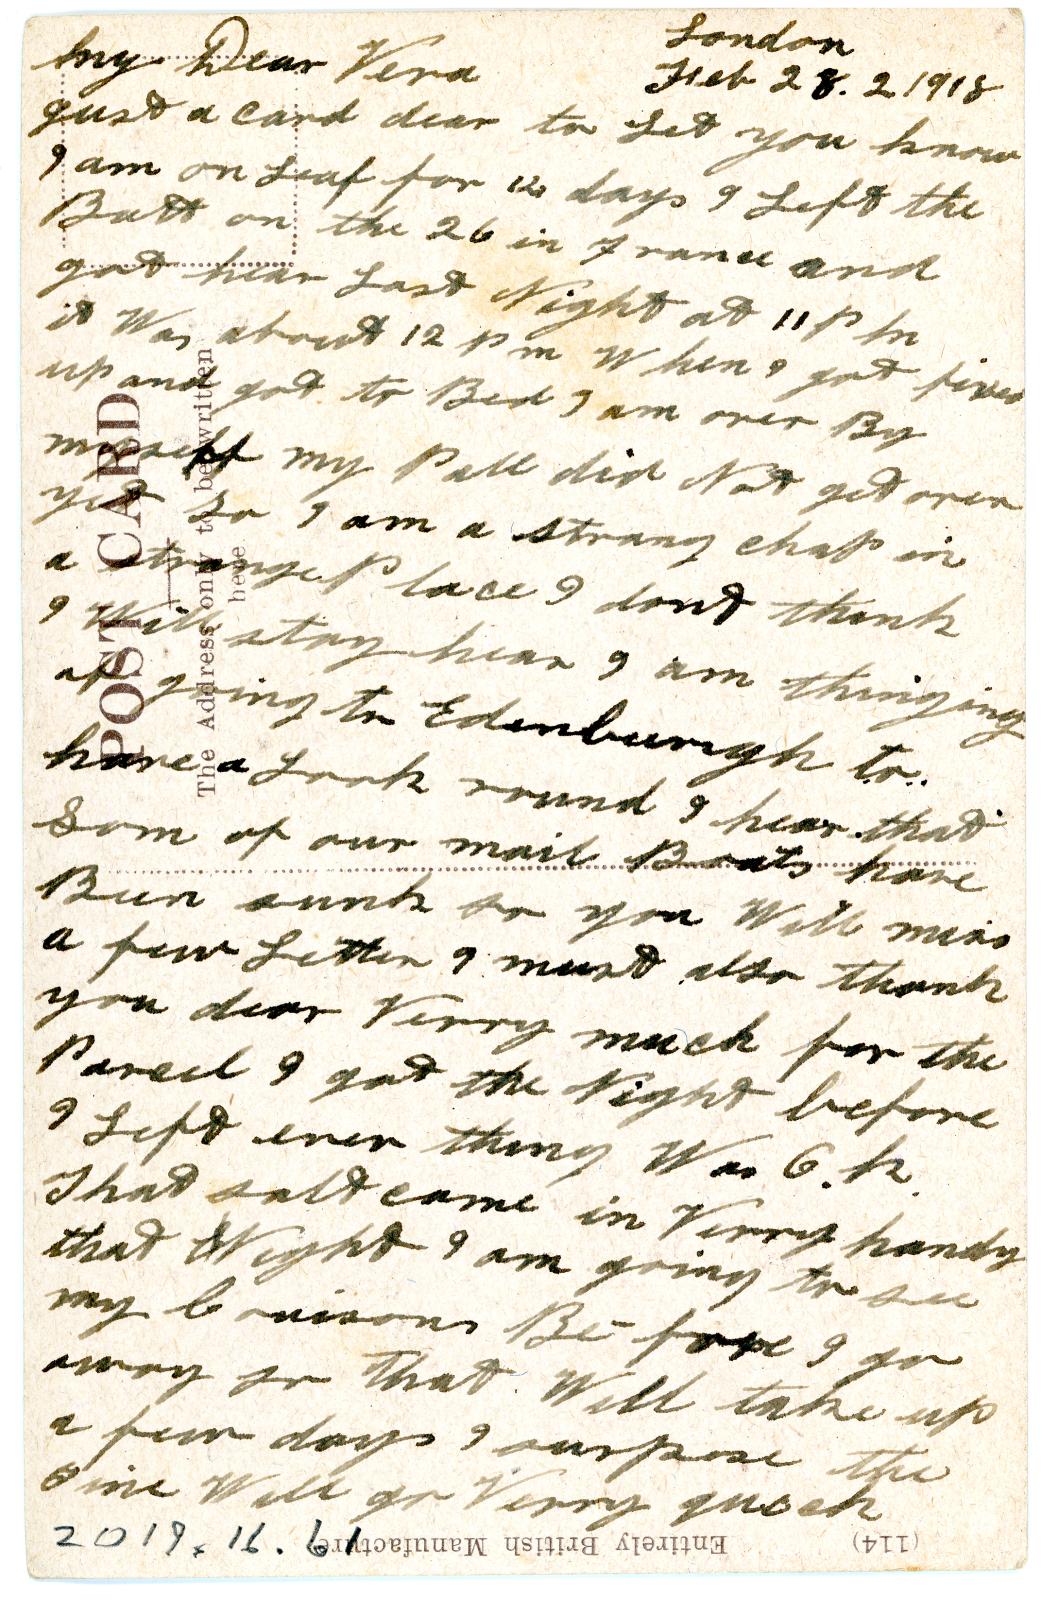 London
My Dear Vera
Feb 28. 2 1918
Just a card dear to Let you know
I am on Leaf for 14 days I Left the
Batt on the 26 in France and
got hear Last Night at 11 P m
it Was about 12 P m When I got fixed
up and got to Bed I am over By
myself my Pall did Not get over
yet So I am a strang chap in
a strange Place I dont think
I Will stay hear I am thinging
of going to Edenburgh to..
have a Look round I hear that
Som of our mail Boats have
Bun sunk so you Will miss
a few Letter I must also thank
you dear Verry much for the
Parcel I got the Night before
I Left ever thing Was O.k.
That salt came in Verry handy
that Night I am going to see
my Couison Be-fore I go
away so that Will take up
a few days I surpose the
time Will go Verry queek
POST CARD
The Address only to be written
here
2019.16.61
Entirely British Manufacture
(114)